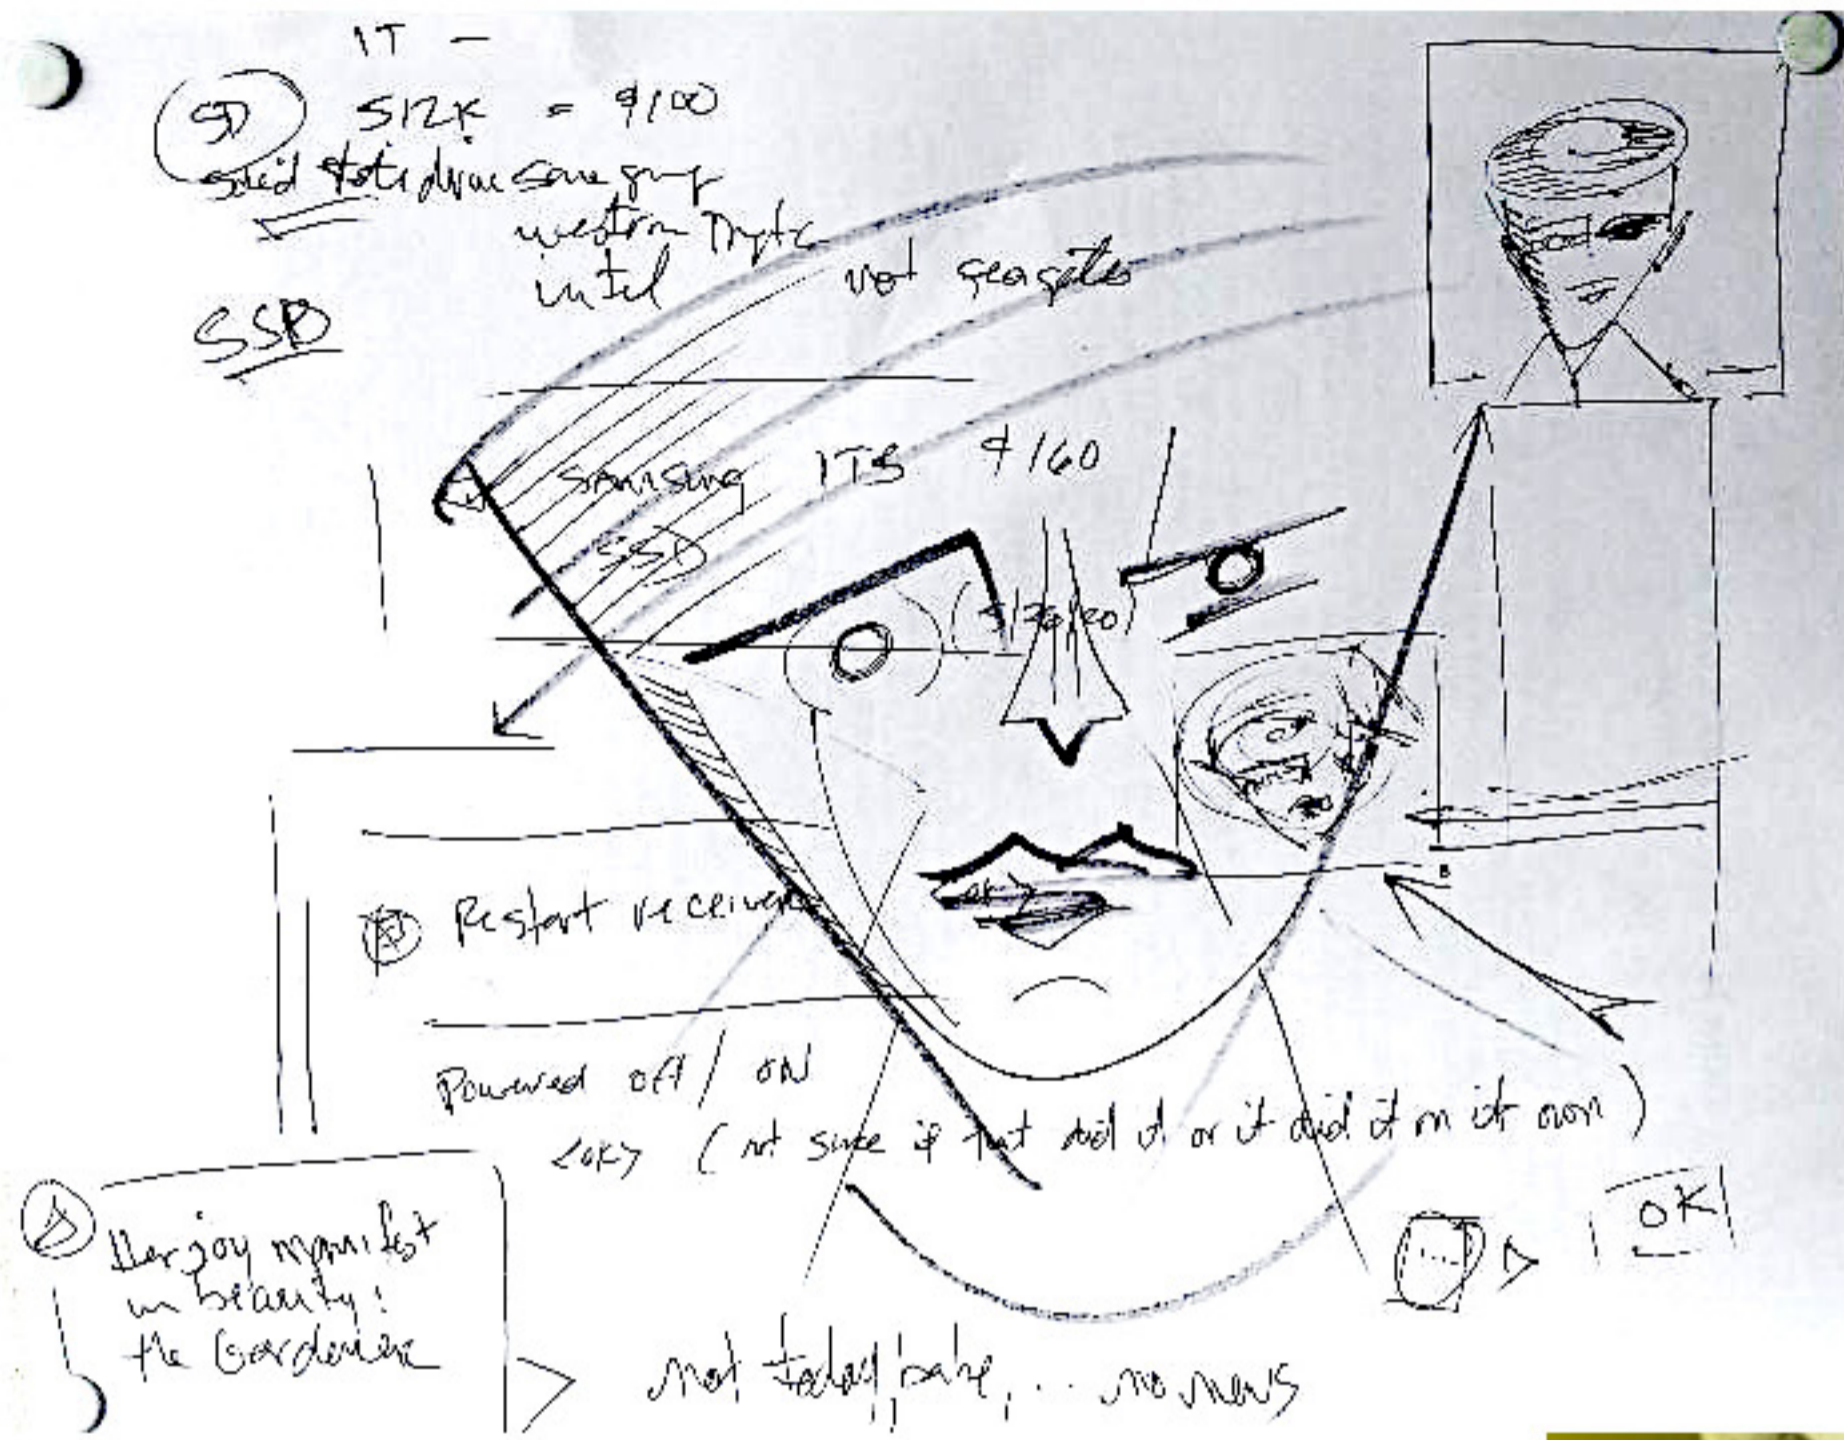 IT —
SD 512K = $100
solid state drive
western
intel not seagate
SSD
samsung ITB $160
SSD
Restart receiver
Powered off / ON
<OK> (not sure if that did it or it did it on it own)
OK
Her joy manifest
in beauty:
the Gardener
not today, babe, ... no news